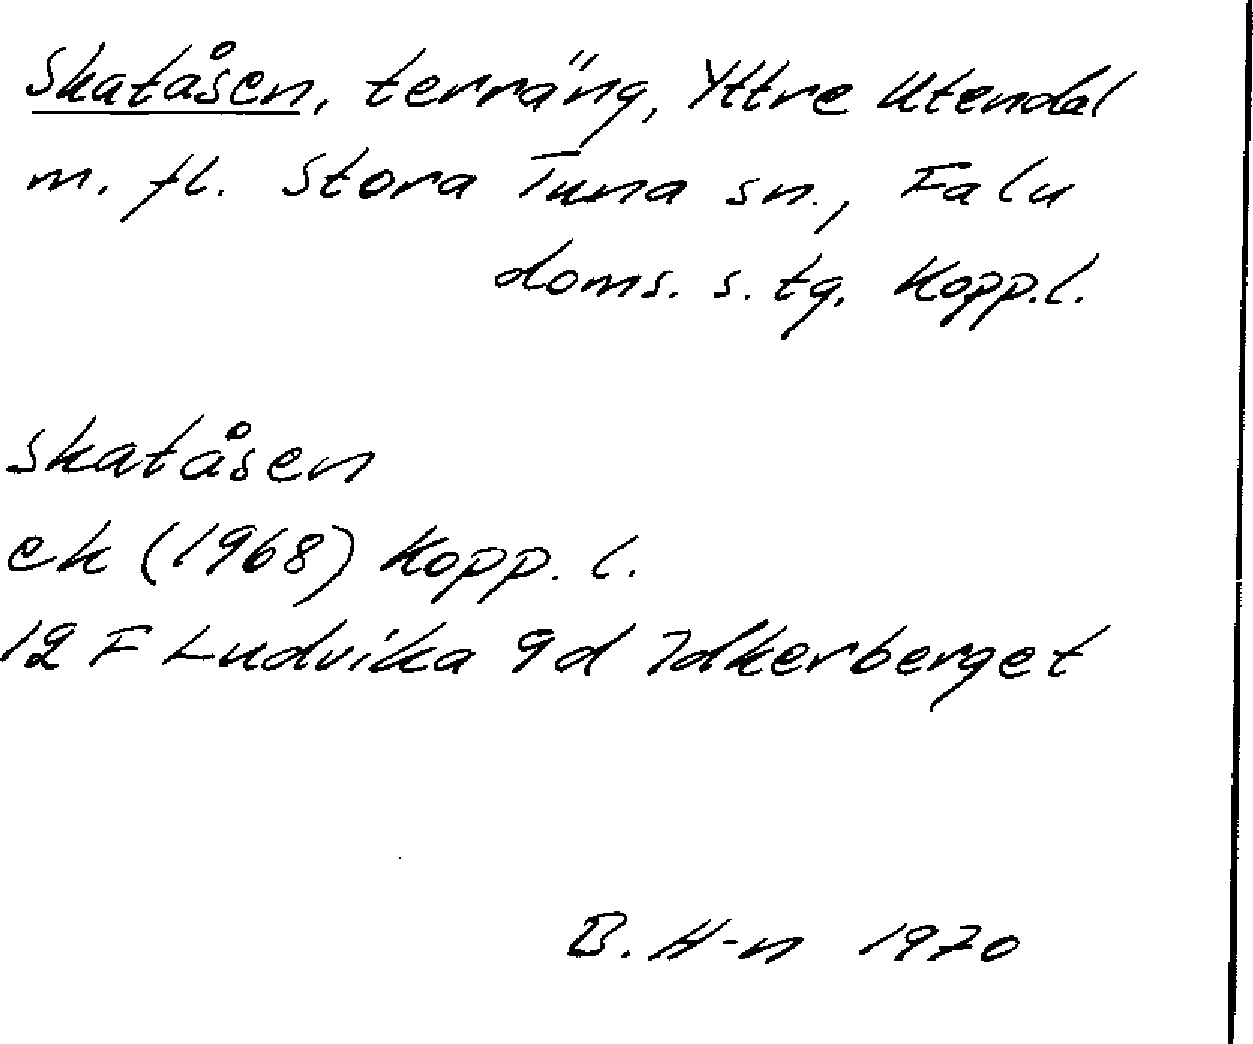 Skatåsen, terräng, Yttre Utendal
m. fl. Stora Tuna sn., Falu
doms. s. tg. Kopp.l.
Skatåsen
ek (1968) Kopp. l.
12 F Ludvika 9d Idkerberget
B. H-n 1970